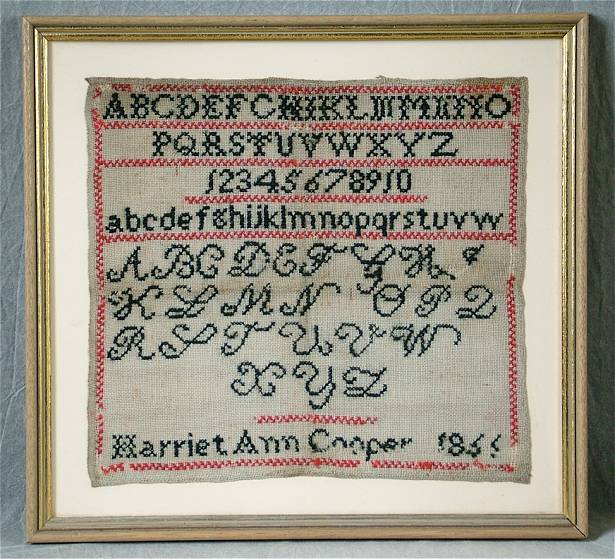 ABCDEFGHIKLMNO
PQRSTUVWXYZ
12345678910
abcdefghijklmnopqrstuvw
ABCDEFGH
KLMN OPQ
RSTUVW
XYZ
Harriet Ann Cooper